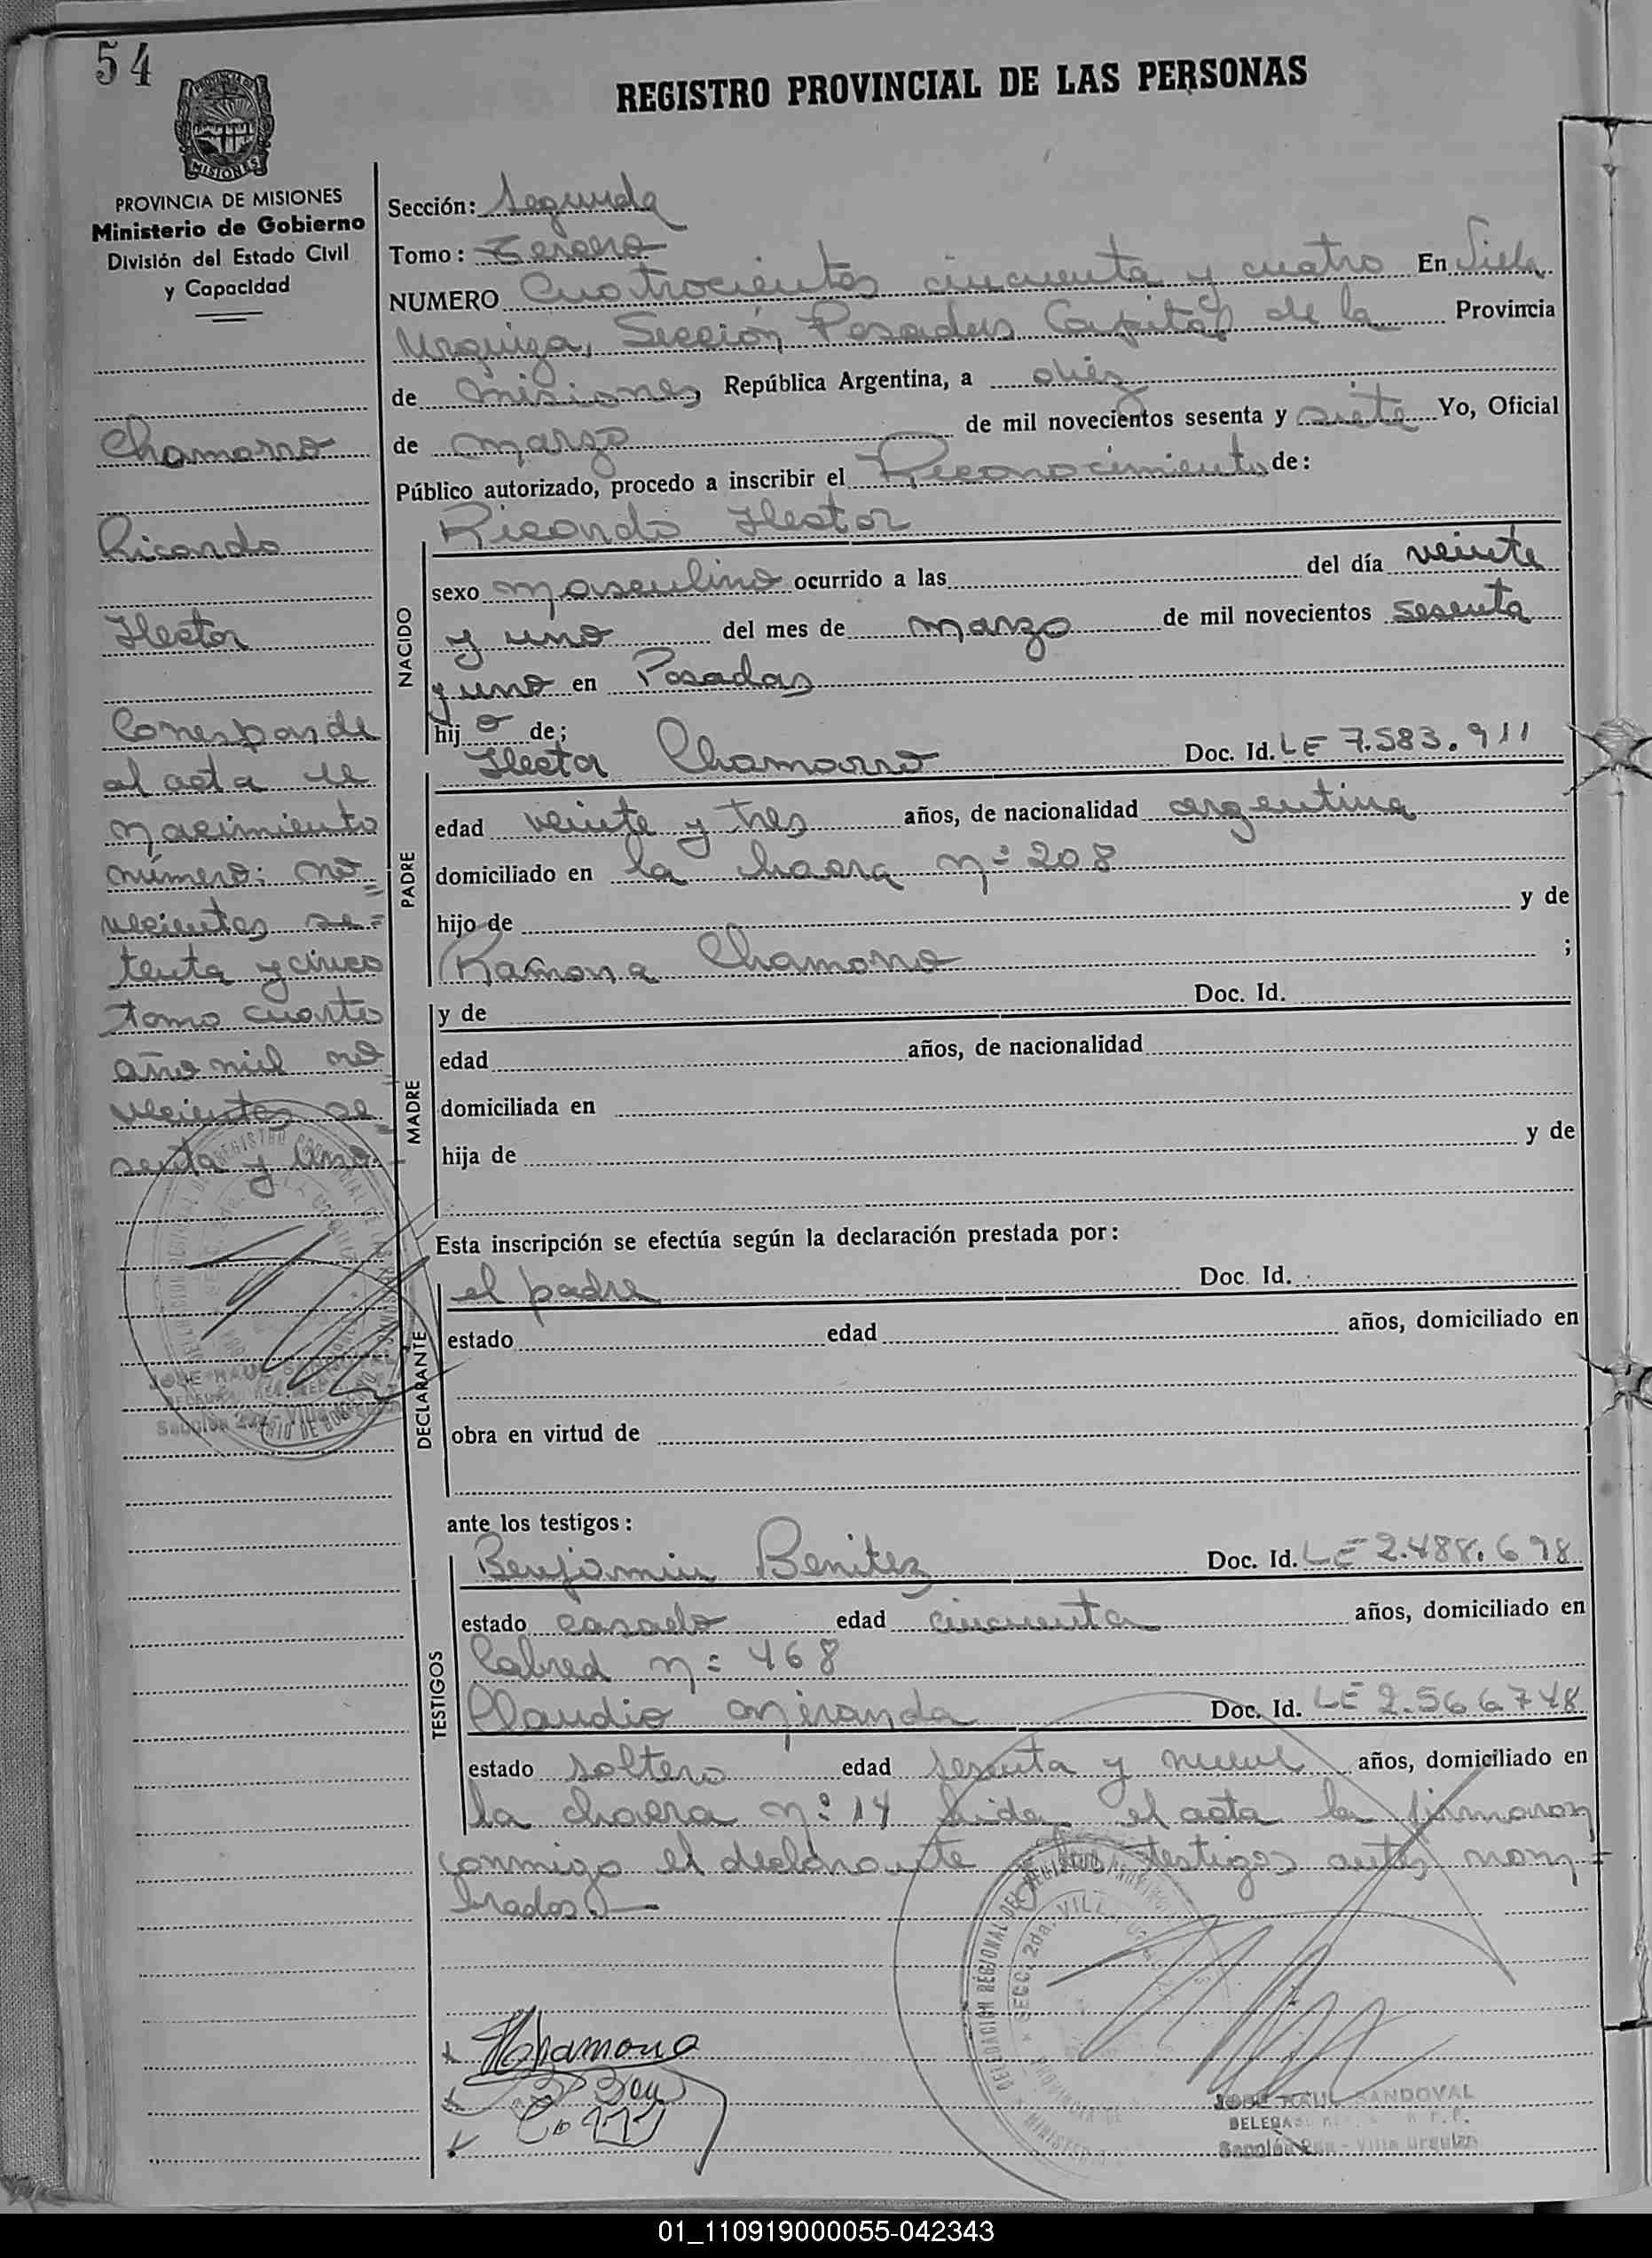 54
REGISTRO PROVINCIAL DE LAS PERSONAS
MISIONES
PROVINCIA DE MISIONES
Ministerio de Gobierno
División del Estado Civil
y Capacidad
Chamorro
Ricardo
Hector
Corresponde
al acta de
nacimiento
número: no=
vecientos se=
tenta y cinco
tomo cuarto
año mil no=
vecientos se=
senta y uno.
Sección: Segunda
Tomo: Tercero
NUMERO Cuatrocientos cincuenta y cuatro En Villa
Urquiza, Sección Posadas Capital de la Provincia
de Misiones, República Argentina, a diez
de marzo de mil novecientos sesenta y siete Yo, Oficial
Público autorizado, procedo a inscribir el Reconocimiento de:
Ricardo Hector
NACIDO
sexo masculino ocurrido a las del día veinte
y uno del mes de marzo de mil novecientos sesenta
y uno en Posadas
hijo de;
PADRE
Hector Chamorro Doc. Id. LE 7.583.911
edad veinte y tres años, de nacionalidad argentina
domiciliado en la chacra nº 208
hijo de y de
Ramona Chamorro ;
MADRE
y de Doc. Id.
edad años, de nacionalidad
domiciliada en
hija de y de
Esta inscripción se efectúa según la declaración prestada por:
DECLARANTE
el padre Doc. Id.
estado edad años, domiciliado en
obra en virtud de
ante los testigos:
TESTIGOS
Benjamin Benitez Doc. Id. LE 2.488.698
estado casado edad cincuenta años, domiciliado en
Cabred nº 468
Claudio Miranda Doc. Id. LE 2.566748
estado soltero edad sesenta y nueve años, domiciliado en
la chacra nº 14 leida el acta la firmaron
conmigo el declarante y los testigos antes nom=
brados.
HChamorro
JOSE RAUL SANDOVAL
Sección 2da - Villa Urquiza
01_110919000055-042343